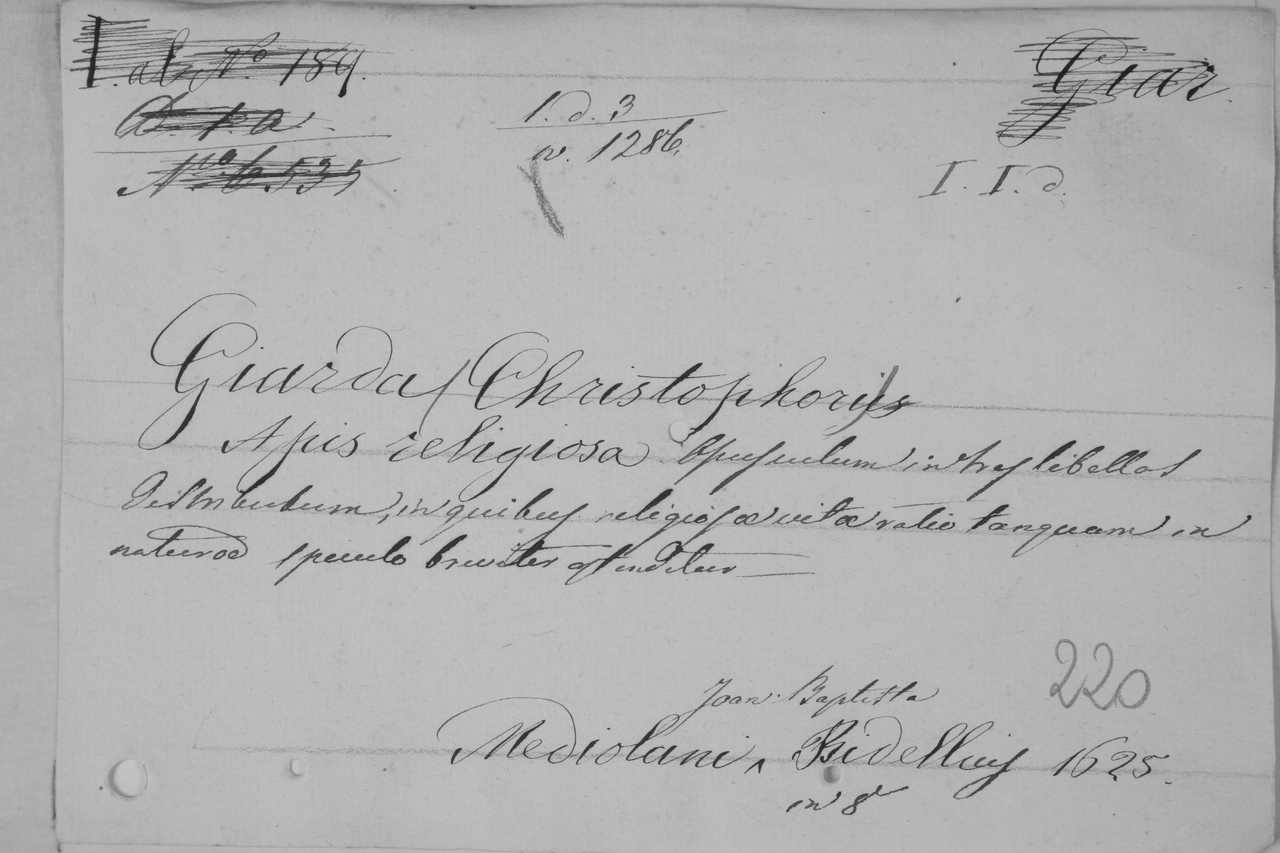 ab. No 189. Giar
D. 1. a. 1. d. 3
No. 6.535. n. 1286. I. I. d.
Giarda, Christophorus
Apis religiosa. Opusculum in tres libellos
distributum, in quibus religiosæ vitæ ratio tanquam in
naturæ speculo breviter ostenditur
220
Joan. Baptista
Mediolani, Bidellius 1625.
in 8